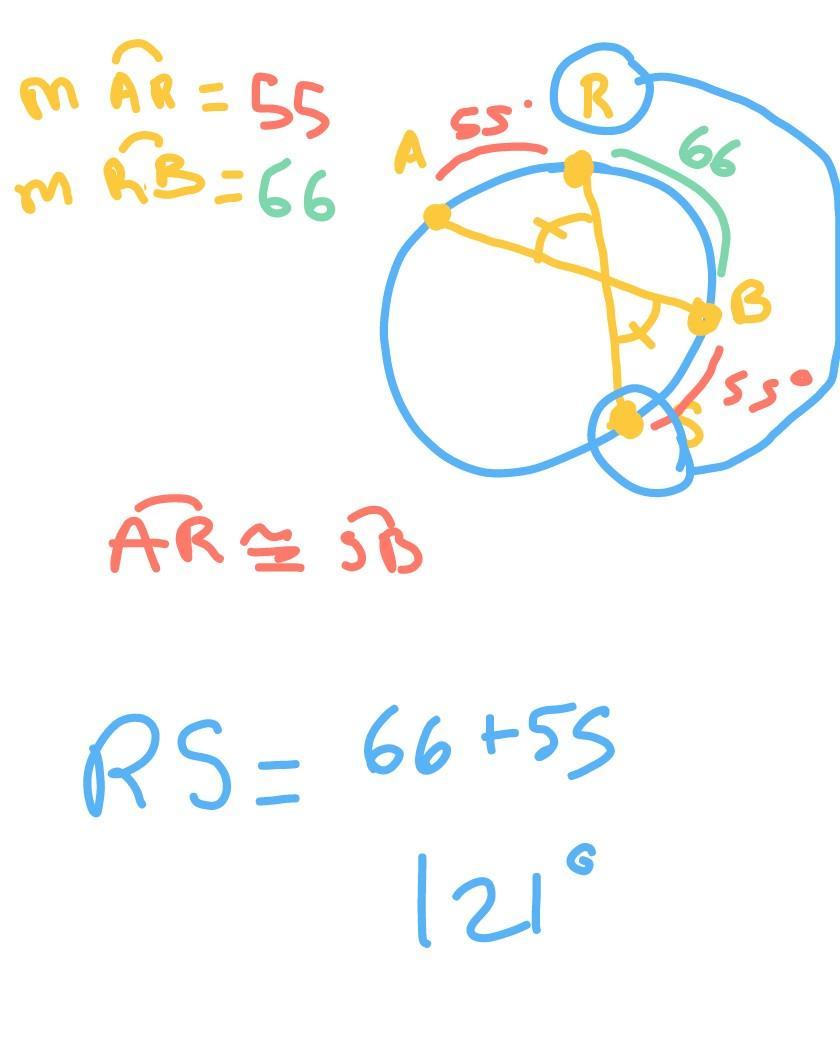 m AR = 55
m RB = 66
R
A
55°
66
B
55°
S
AR ≅ SB
RS = 66 + 55
121°